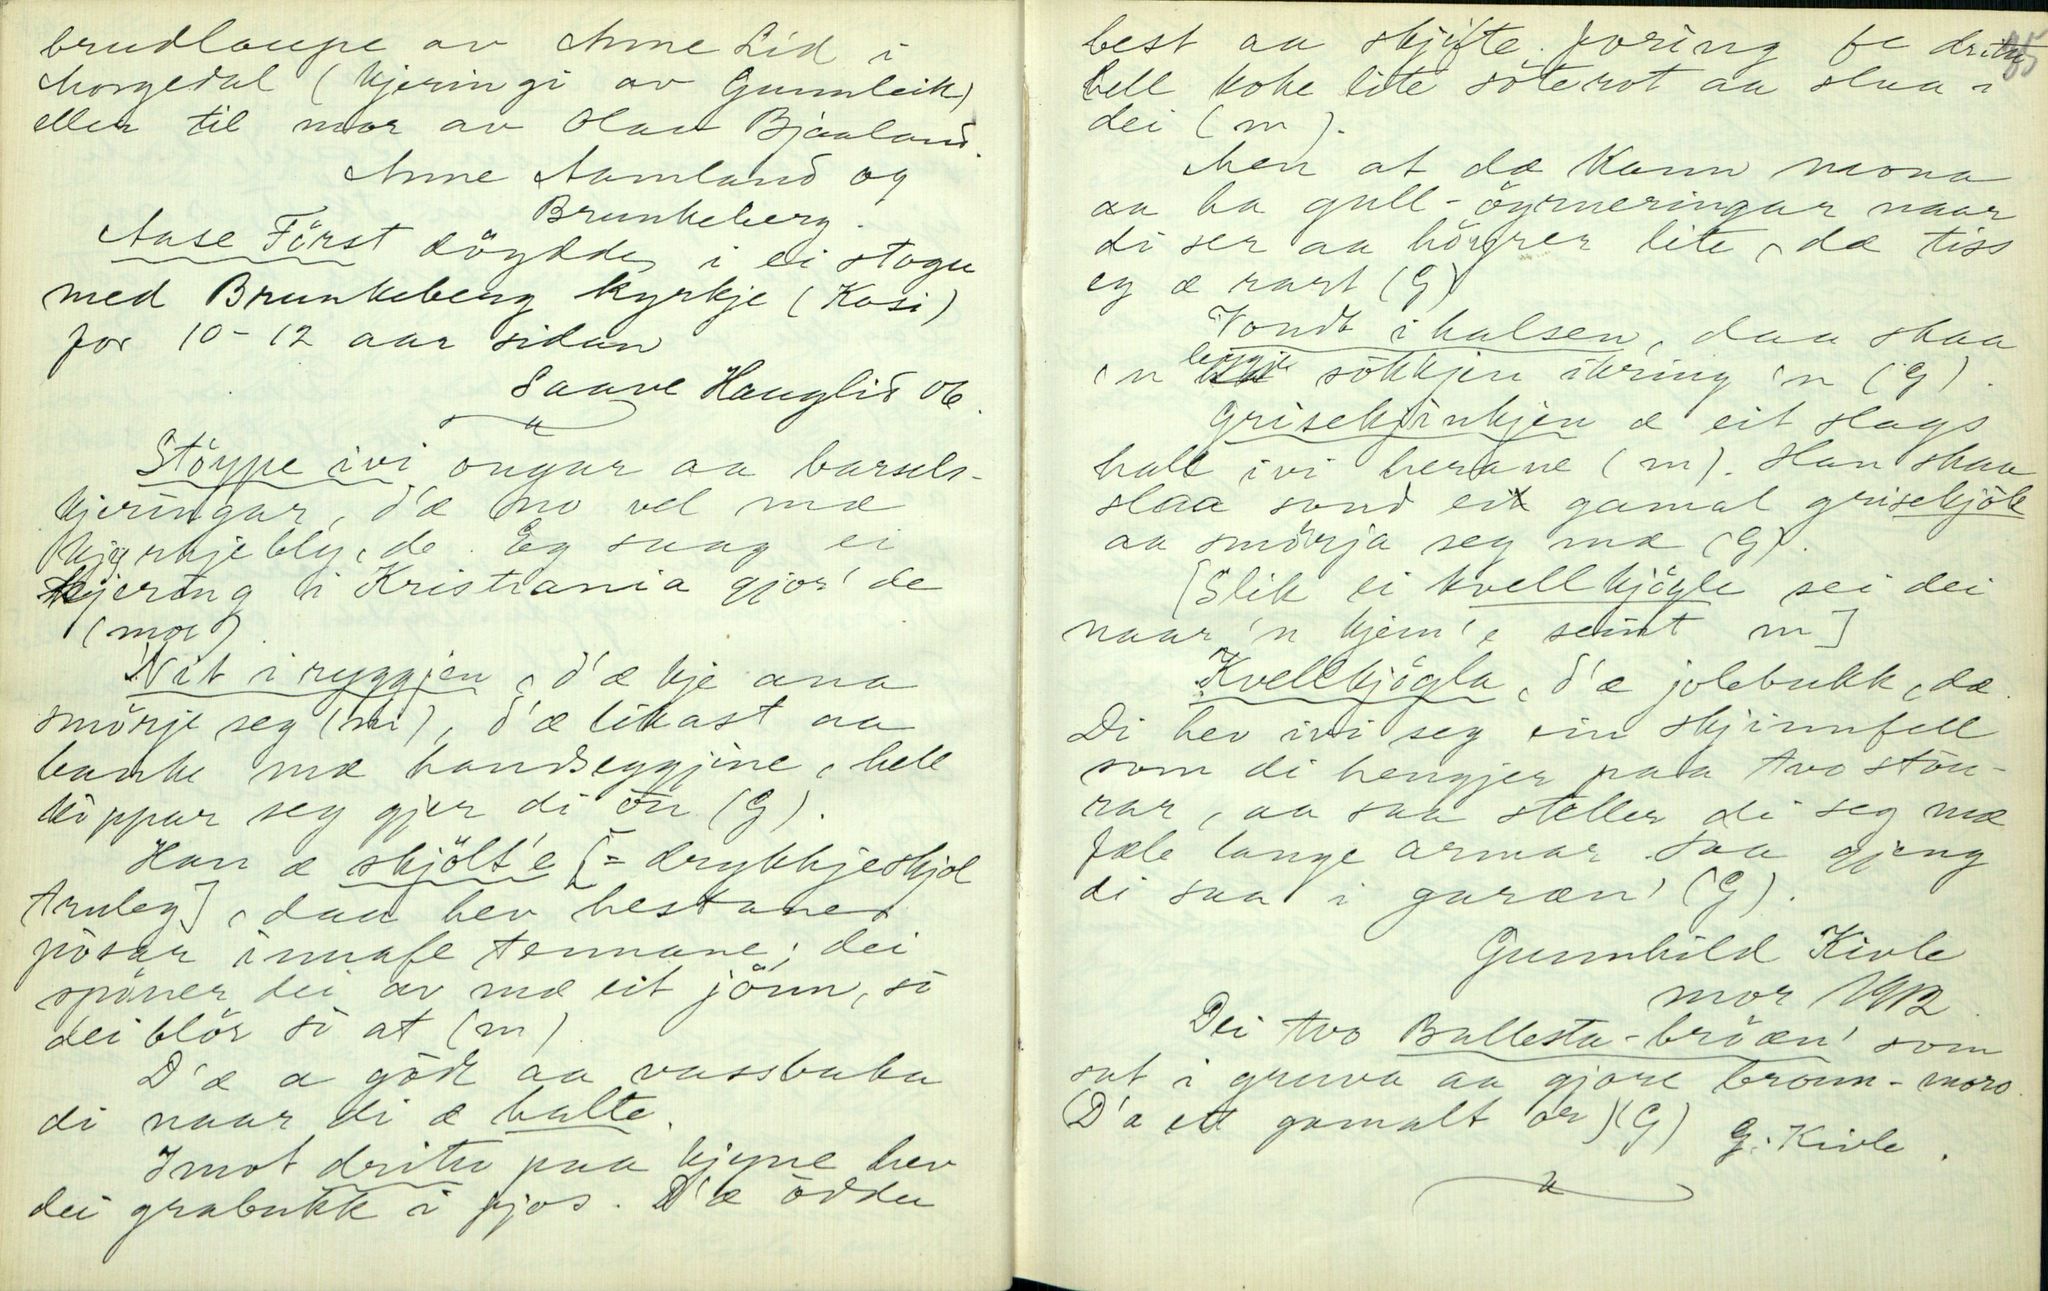 brudlaupe av Anne Lid i
Morgedal (kjeringi av Gunnleik)
eller til mor av Olav Bjaaland.
Anne Aamland og
Brunkeberg.
Aase Först döydde i ei stogu
med Brunkeberg kyrkje (Kosi)
for 10-12 aar sidan
Saave Hauglid og.
Stöype ivi ongar aa barsels-
kjeringar, d'æ no vel mæ
kjyrkjebly, de. Eg saag ei
kjering i Kristiania gjor' de
(mor)
Vit i ryggjen, d'æ kje ana
smörje seg (m), d'æ likast aa
banke mæ handseggjine, hell
kippar seg gjer di ön (G).
Han æ skjölt'e [= drykkjeskjol
truleg], daa hev hestane
pösar innafe tennane; dei
spöner dei av mæ eit jönn, så
dei blör so at (m)
D'æ a gödt aa vassbaka
di naar di æ halte.
Imot dritu paa kjyne hev
dei grabukk i fjos. D'æ ödden
best aa skjifte foring fe dritu
hell koke lite söterot aa slaa i
dei (m).
Men at dæ kann mona
aa ha gull-öyrneringar naar
di ser aa höyrer lite, dæ tiss
eg æ rart (G)
Vondt i halsen, daa skaa
'n lengje sökkjen ikring 'n (G).
Grisekjinkjen æ eit slags
hall ivi herane (m). Han skaa
slaa sund eit gamal grisekjök
aa smörja seg mæ (G).
[Slik ei kvellkjögle sei dei
naar 'n kjem'e seint m]
Kvellkjögla, d'æ jolebukk, dæ.
Di hev ivi seg ein skjinnfell
som di hengjer paa tvo stön-
rar, aa saa steller di seg mæ
fæle lange armar. Saa gjeng
di saa i garæn' (G).
Gunnhild Kivle
mor 1912.
Dei tvo Ballesta-bröæn' som
sat i gruva aa gjore bronn-moro.
(D'æ eit gamalt or) (G) G. Kivle.